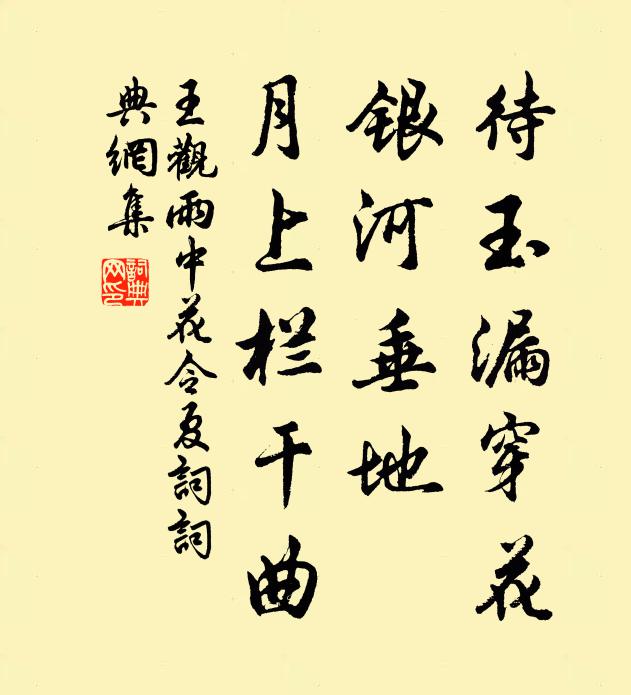 待玉漏穿花
银河垂地
月上栏干曲
王觀雨中花令夏詞詞
典網集
詞典
网印